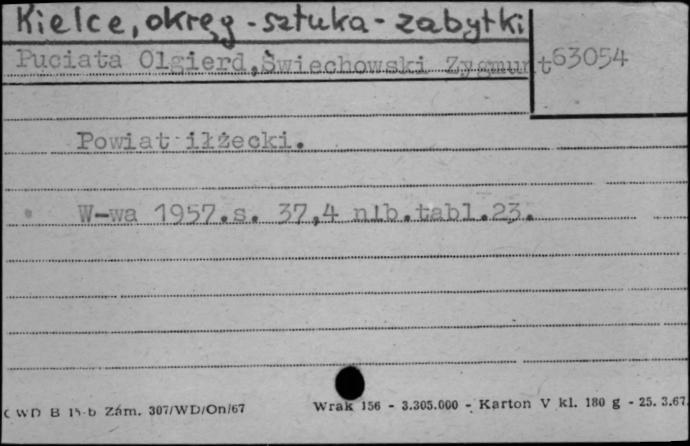 Kielce, okręg - sztuka - zabytki
Puciata Olgierd, Świechowski Zygmunt 63054
Powiat iłżecki.
W-wa 1957.s. 37,4 nlb.tabl.23.
CWD B 15-b Zám. 307/WD/On/67 Wrak 156 - 3.305.000 - Karton V kl. 180 g - 25. 3.67